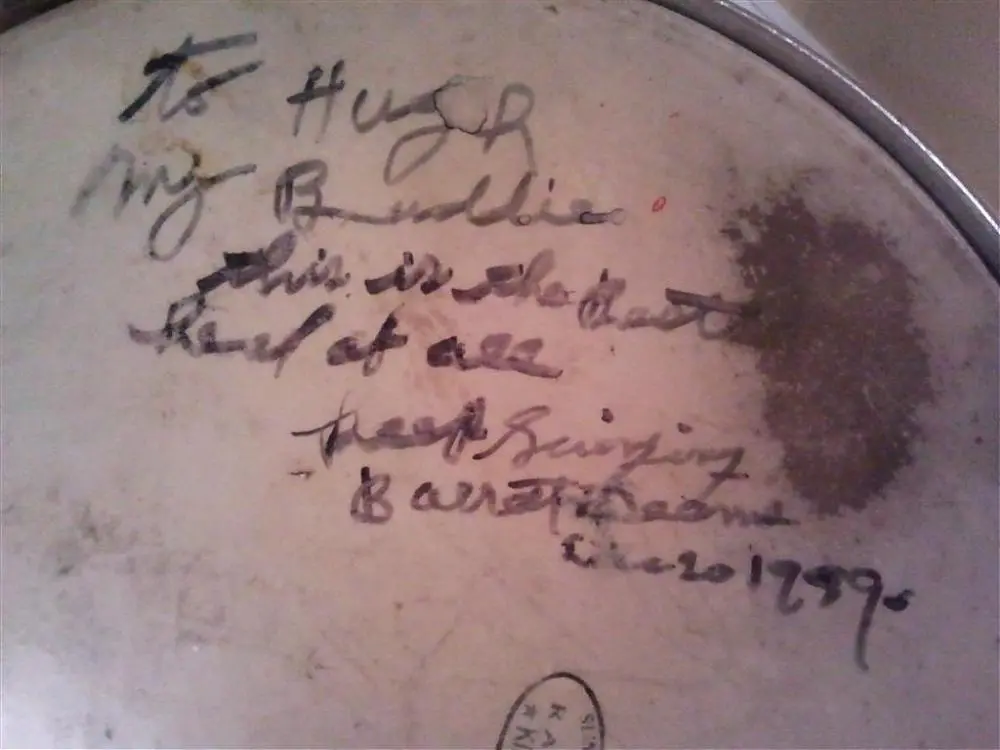 to Hugh
My Buddie
this is the Best
head of all
Keep Swinging
Barrett Deems
Dec 20 1989.
KA